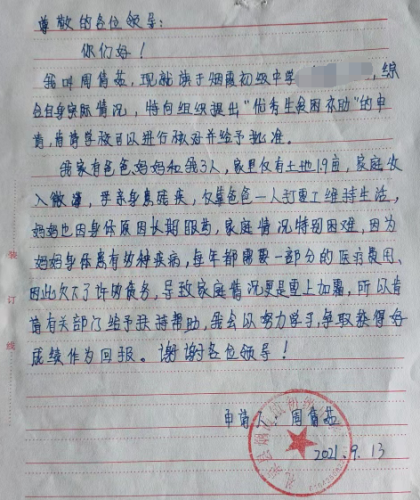 尊敬的各位领导：
你们好！
我叫周倩茹，现就读于烟霞初级中学，综
合自身实际情况，特向组织提出“优秀生贫困求助”的申
请，肯请学校可以进行核对并给予批准。
我家有爸爸妈妈和我3人，家里仅有土地1.9亩，家庭收
入微薄，母亲身患残疾，仅靠爸爸一人打零工维持生活，
妈妈也因身体原因长期服药，家庭情况特别困难，因为
妈妈身体患有多种疾病，每年都需要一部分的医疗费用，
因此欠下了许多债务，导致家庭情况更是雪上加霜，所以肯
请有关部门给予扶持帮助，我会以努力学习，争取获得好
成绩作为回报。谢谢各位领导！
申请人：周倩茹
2021.9.13
装订线